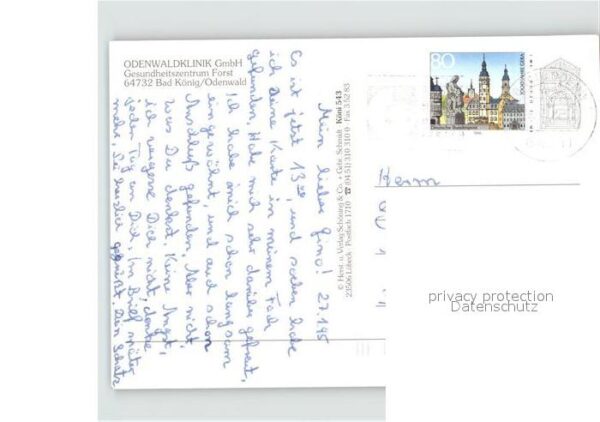 ODENWALDKLINIK GmbH
Gesundheitszentrum Forst
64732 Bad König/Odenwald
Mein lieber Gino! 27.1.95
Es ist jetzt 13 00, und soeben habe
ich Deine Karte in meinem Fach
gefunden. Habe mich sehr darüber gefreut.
Ich habe mich schon langsam
eingewöhnt, und auch schon
Anschluß gefunden. Aber nicht,
was Du denkst. Keine Angst,
ich vergesse Dich nicht, denke
jeden Tag an Dich. Im Brief später
mehr. Sei herzlich gegrüßt. Dein Schatz
© Herst. u. Verlag Schöning & Co. + Gebr. Schmidt Köni 543
23506 Lübeck · Postfach 1710 · ☎ (0451) 310 310 · Fax 3 52 83
80
1000 JAHRE GERA
Deutsche Bundespost
Herrn
privacy protection
Datenschutz